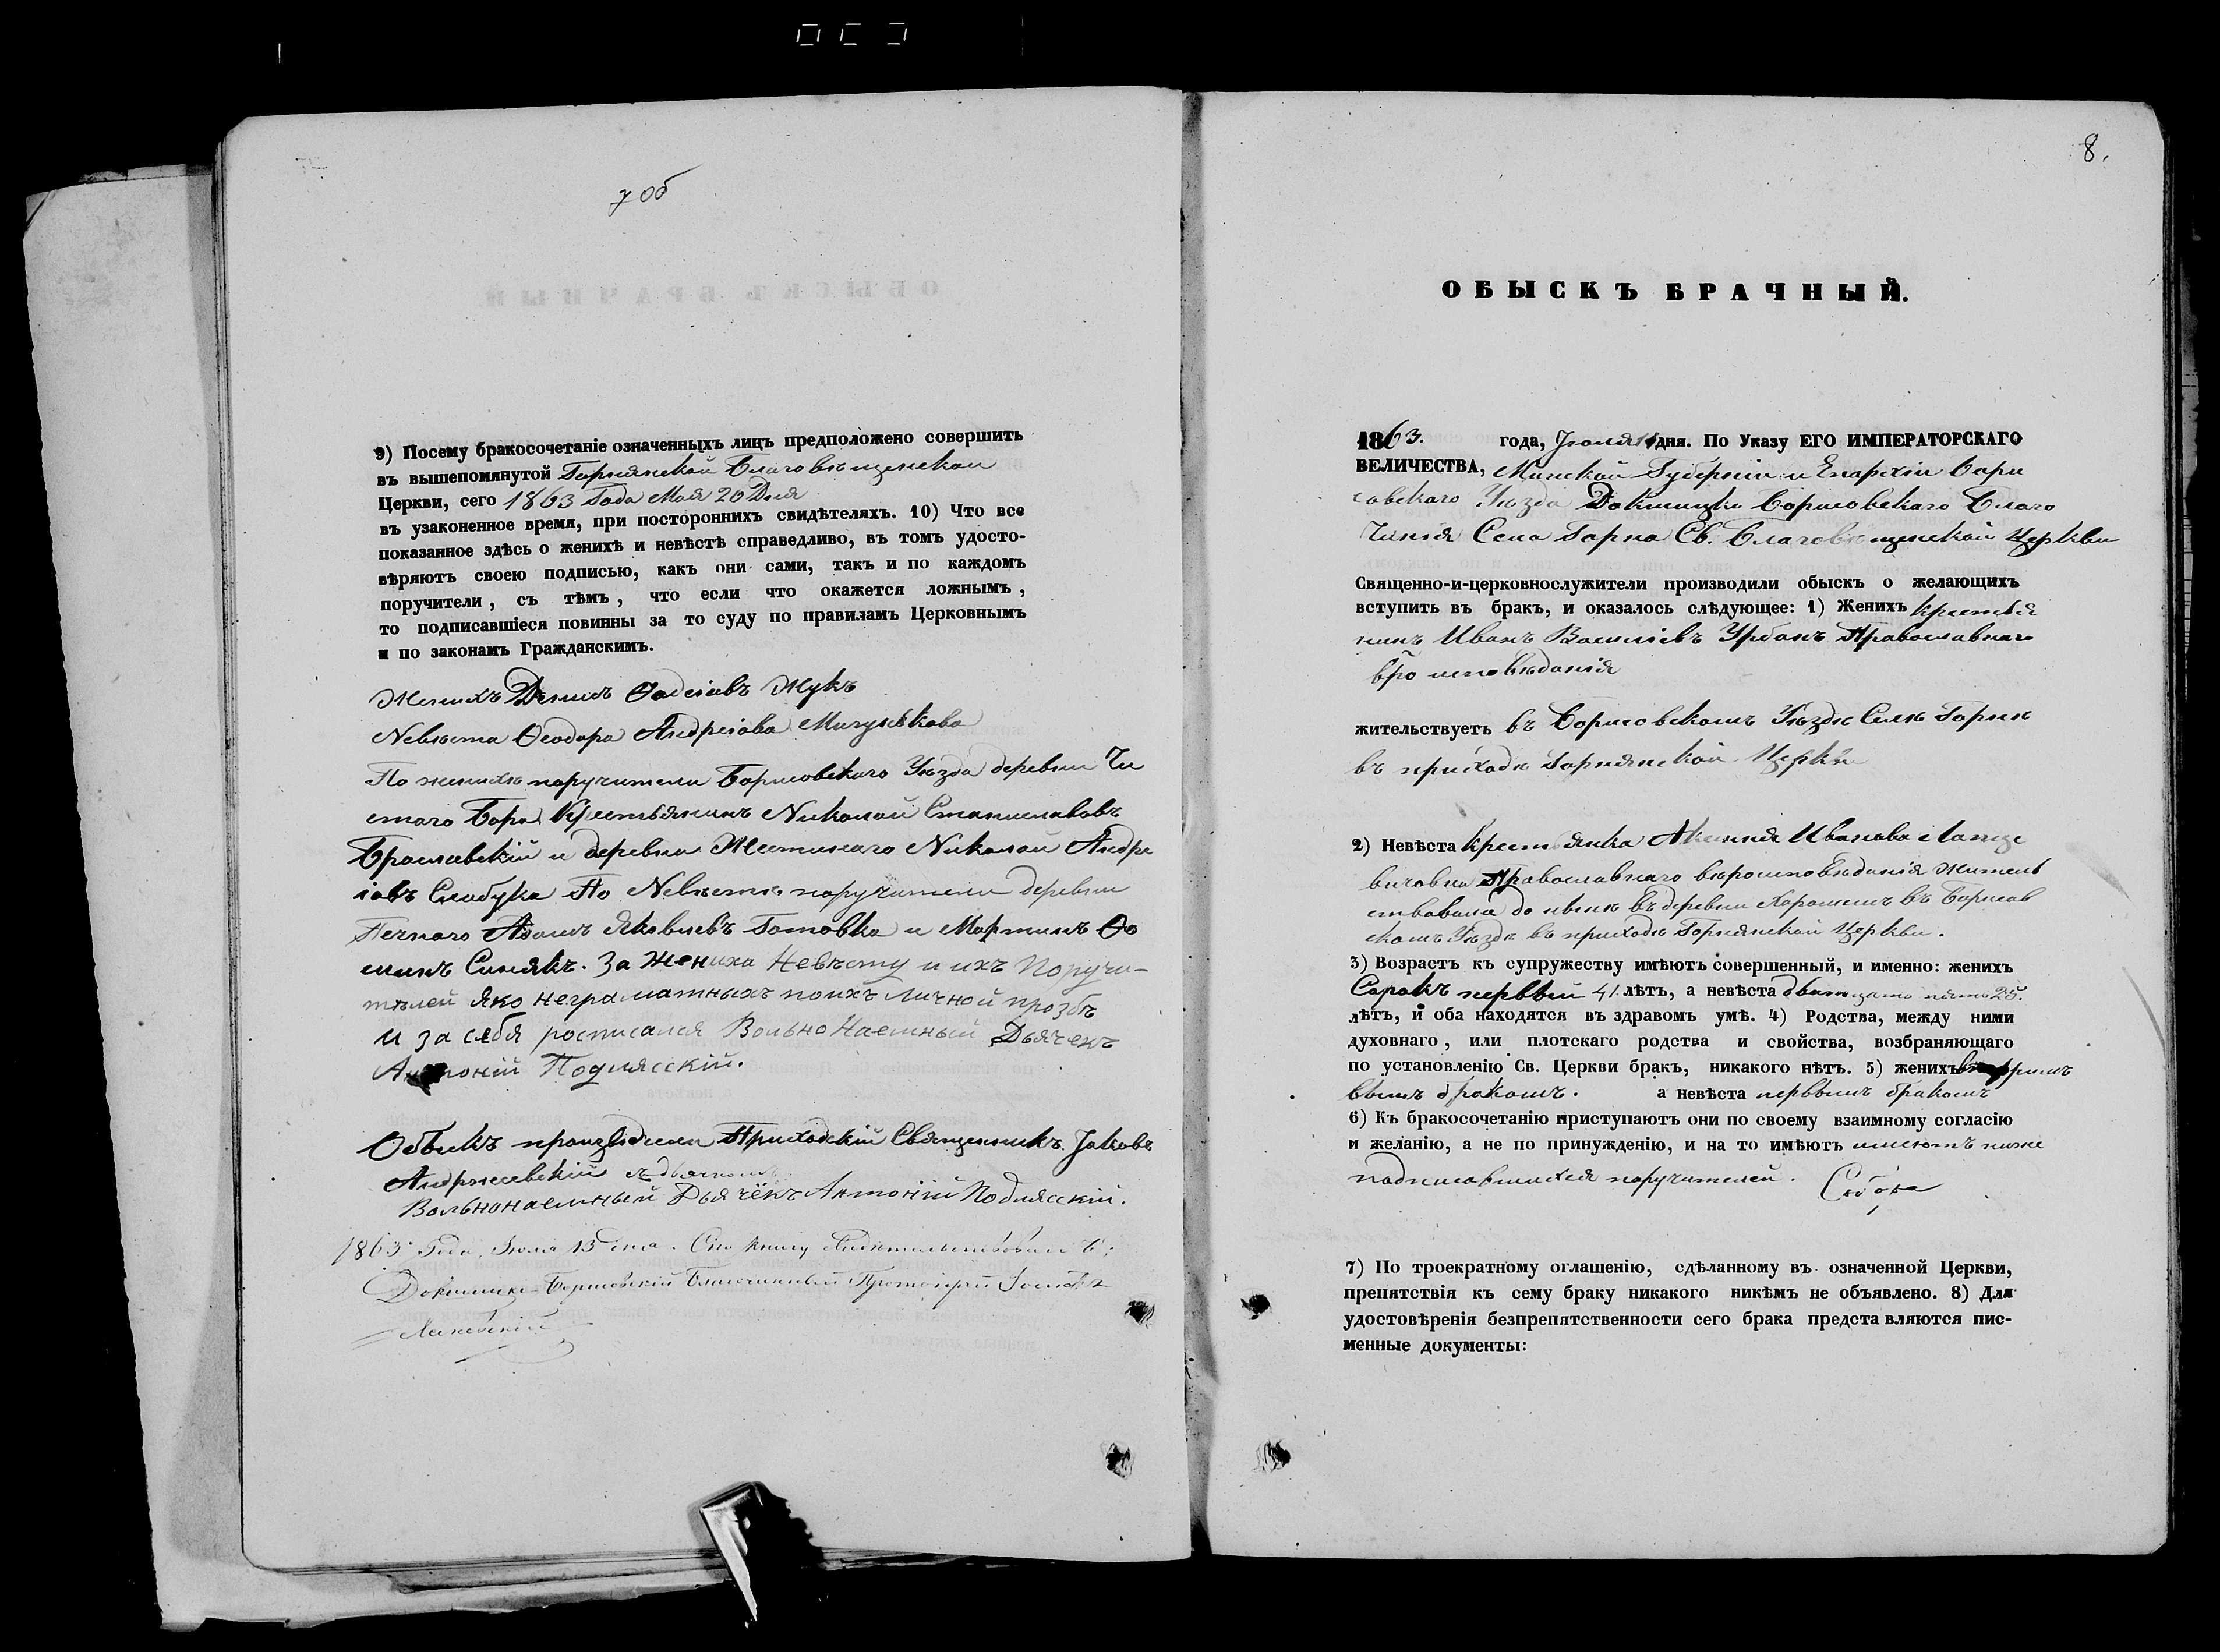 7 об
9) Посему бракосочетаніе означенныхъ лицъ предположено совершить
въ вышепомянутой Горнянской Благовѣщенской
Церкви, сего 1863 Года Мая 20 Дня
въ узаконенное время, при постороннихъ свидѣтеляхъ. 10) Что все
показанное здѣсь о женихѣ и невѣстѣ справедливо, въ томъ удосто-
вѣряютъ своею подписью, какъ они сами, такъ и по каждомъ
поручители, съ тѣмъ, что если что окажется ложнымъ,
то подписавшіеся повинны за то суду по правиламъ Церковнымъ
и по законамъ Гражданскимъ.
Женихъ Жукъ
Nевѣста Ѳеодора Андреіова
По женихѣ поручители Борисовскаго Уѣзда деревни Чи
стаго Бора Крестьянинъ Nиколай Станиславовъ
Браславскій и деревни Nиколай Андре
іовъ Слабука По Nевѣстѣ поручители деревни
Яковлевъ Готовка и Мартинъ Ѳо
минъ Синякъ. За Жениха Невѣсту и ихъ Поручи-
тѣлей Яко неграматныхъ поихъ Личной прозбѣ
И за себя росписался ВольноНаемный Дьячекъ
Антоній Подлясскій.
Обыскъ произвдили Приходскій Священникъ Јаковъ
Андржеевскій
Вольнонаемный Дьячёкъ Антоній Подлясскій.
1863 Года, Іюля 13 дня. Сію книгу Свидѣтельствовалъ
Докшицко-Борисовскій Благочинный Протоіерей
8.
ОБЫСКЪ БРАЧНЫЙ.
1863. года, Јюля 11 дня. По Указу ЕГО ИМПЕРАТОРСКАГО
ВЕЛИЧЕСТВА, Минской Губерніи и Епархіи Бори
совскаго Уѣзда Докшицко Борисовскаго Благо
чинія Села Горна Св. Благовѣщенской Церкви
Священно-и-церковнослужители производили обыскъ о желающихъ
вступить въ бракъ, и оказалось слѣдующее: 1) Женихъ крестья
нинъ Иванъ Василіевъ Урбанъ Православнаго
вѣроисповѣданія
жительствуетъ въ Борисовскомъ Уѣздѣ Селѣ Горнѣ
въ приходѣ Горнянской Церкви
2) Невѣста крестьянка Иванова
Православнаго вѣроисповѣданія Житель
ствовала до нынѣ въ деревни въ Борисов
скомъ Уѣздѣ въ приходѣ Горнянской Церкви.
3) Возрастъ къ супружеству имѣютъ совершенный, и именно: женихъ
Сорокъ первый 41. лѣтъ, а невѣста двадцать пять 25.
лѣтъ, и оба находятся въ здравомъ умѣ. 4) Родства, между ними
духовнаго, или плотскаго родства и свойства, возбраняющаго
по установленію Св. Церкви бракъ, никакого нѣтъ. 5) женихъ
бракомъ. а невѣста первымъ бракомъ
6) Къ бракосочетанію приступаютъ они по своему взаимному согласію
и желанію, а не по принужденію, и на то имѣютъ имѣютъ ниже
подписавшихся поручителей.
7) По троекратному оглашенію, сдѣланному въ означенной Церкви,
препятствія къ сему браку никакого никѣмъ не объявлено. 8) Для
удостовѣренія безпрепятственности сего брака представляются пис-
менные документы: